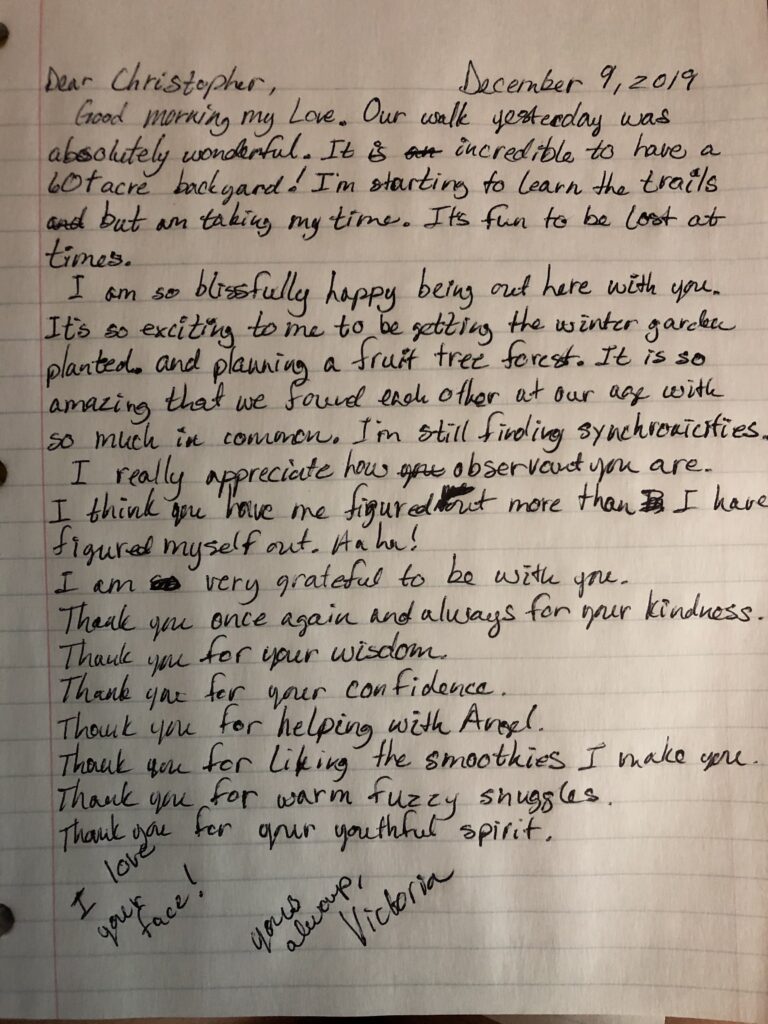 Dear Christopher, December 9, 2019
Good morning my Love. Our walk yesterday was
absolutely wonderful. It is an incredible to have a
60+ acre backyard! I'm starting to learn the trails
and but am taking my time. It's fun to be lost at
times.
I am so blissfully happy being out here with you.
It's so exciting to me to be getting the winter garden
planted. and planning a fruit tree forest. It is so
amazing that we found each other at our age with
so much in common. I'm still finding synchronicities.
I really appreciate how you observant you are.
I think you have me figured out more than I have
figured myself out. Haha!
I am so very grateful to be with you.
Thank you once again and always for your kindness.
Thank you for your wisdom.
Thank you for your confidence.
Thank you for helping with Angel.
Thank you for liking the smoothies I make you.
Thank you for warm fuzzy snuggles.
Thank you for your youthful spirit.
I love
your
face!
yours
always,
Victoria